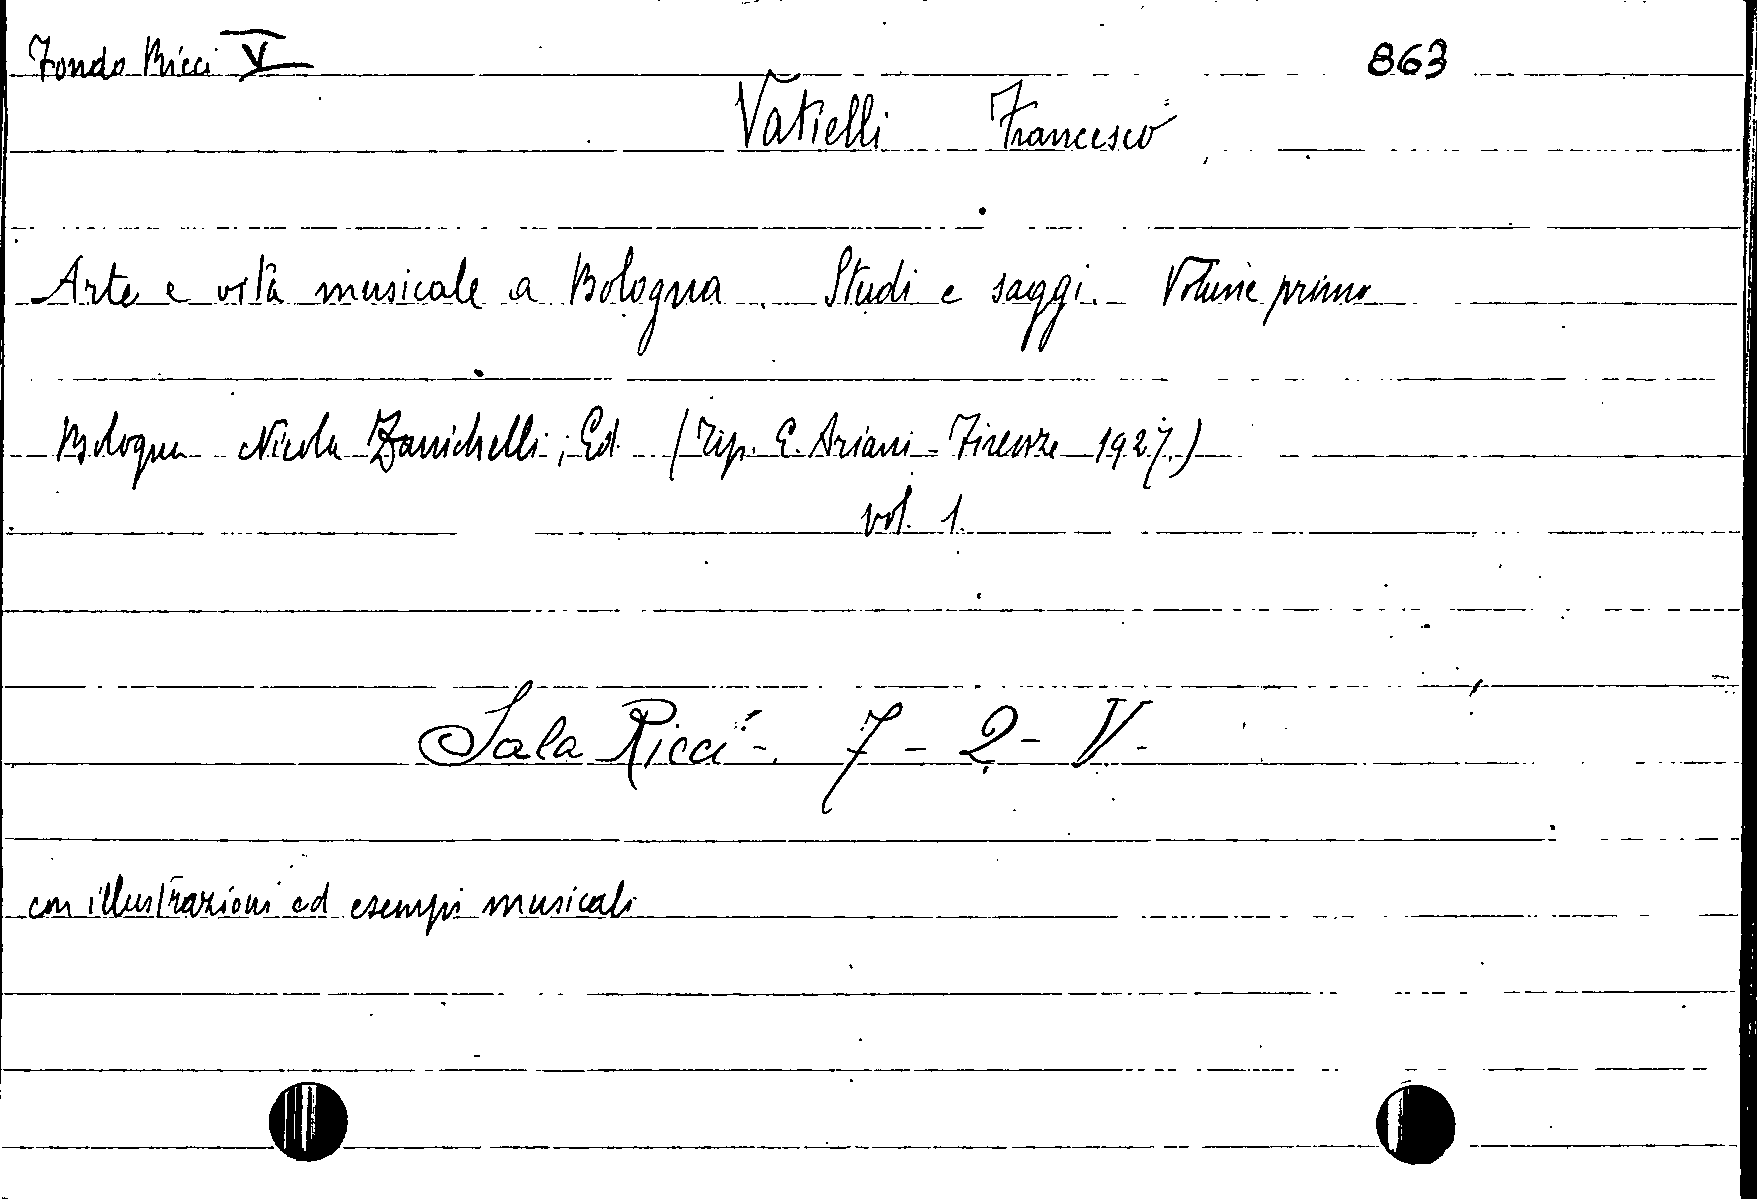 Fondo Ricci V 863
Vatielli Francesco
Arte e vita musicale a Bologna. Studi e saggi. Volume primo
Bologna Nicola Zanichelli, Ed. (Tip. E. Ariani - Firenze 1927)
vol. 1.
Sala Ricci - 7 - 2 - V -
con illustrazioni ed esempi musicali